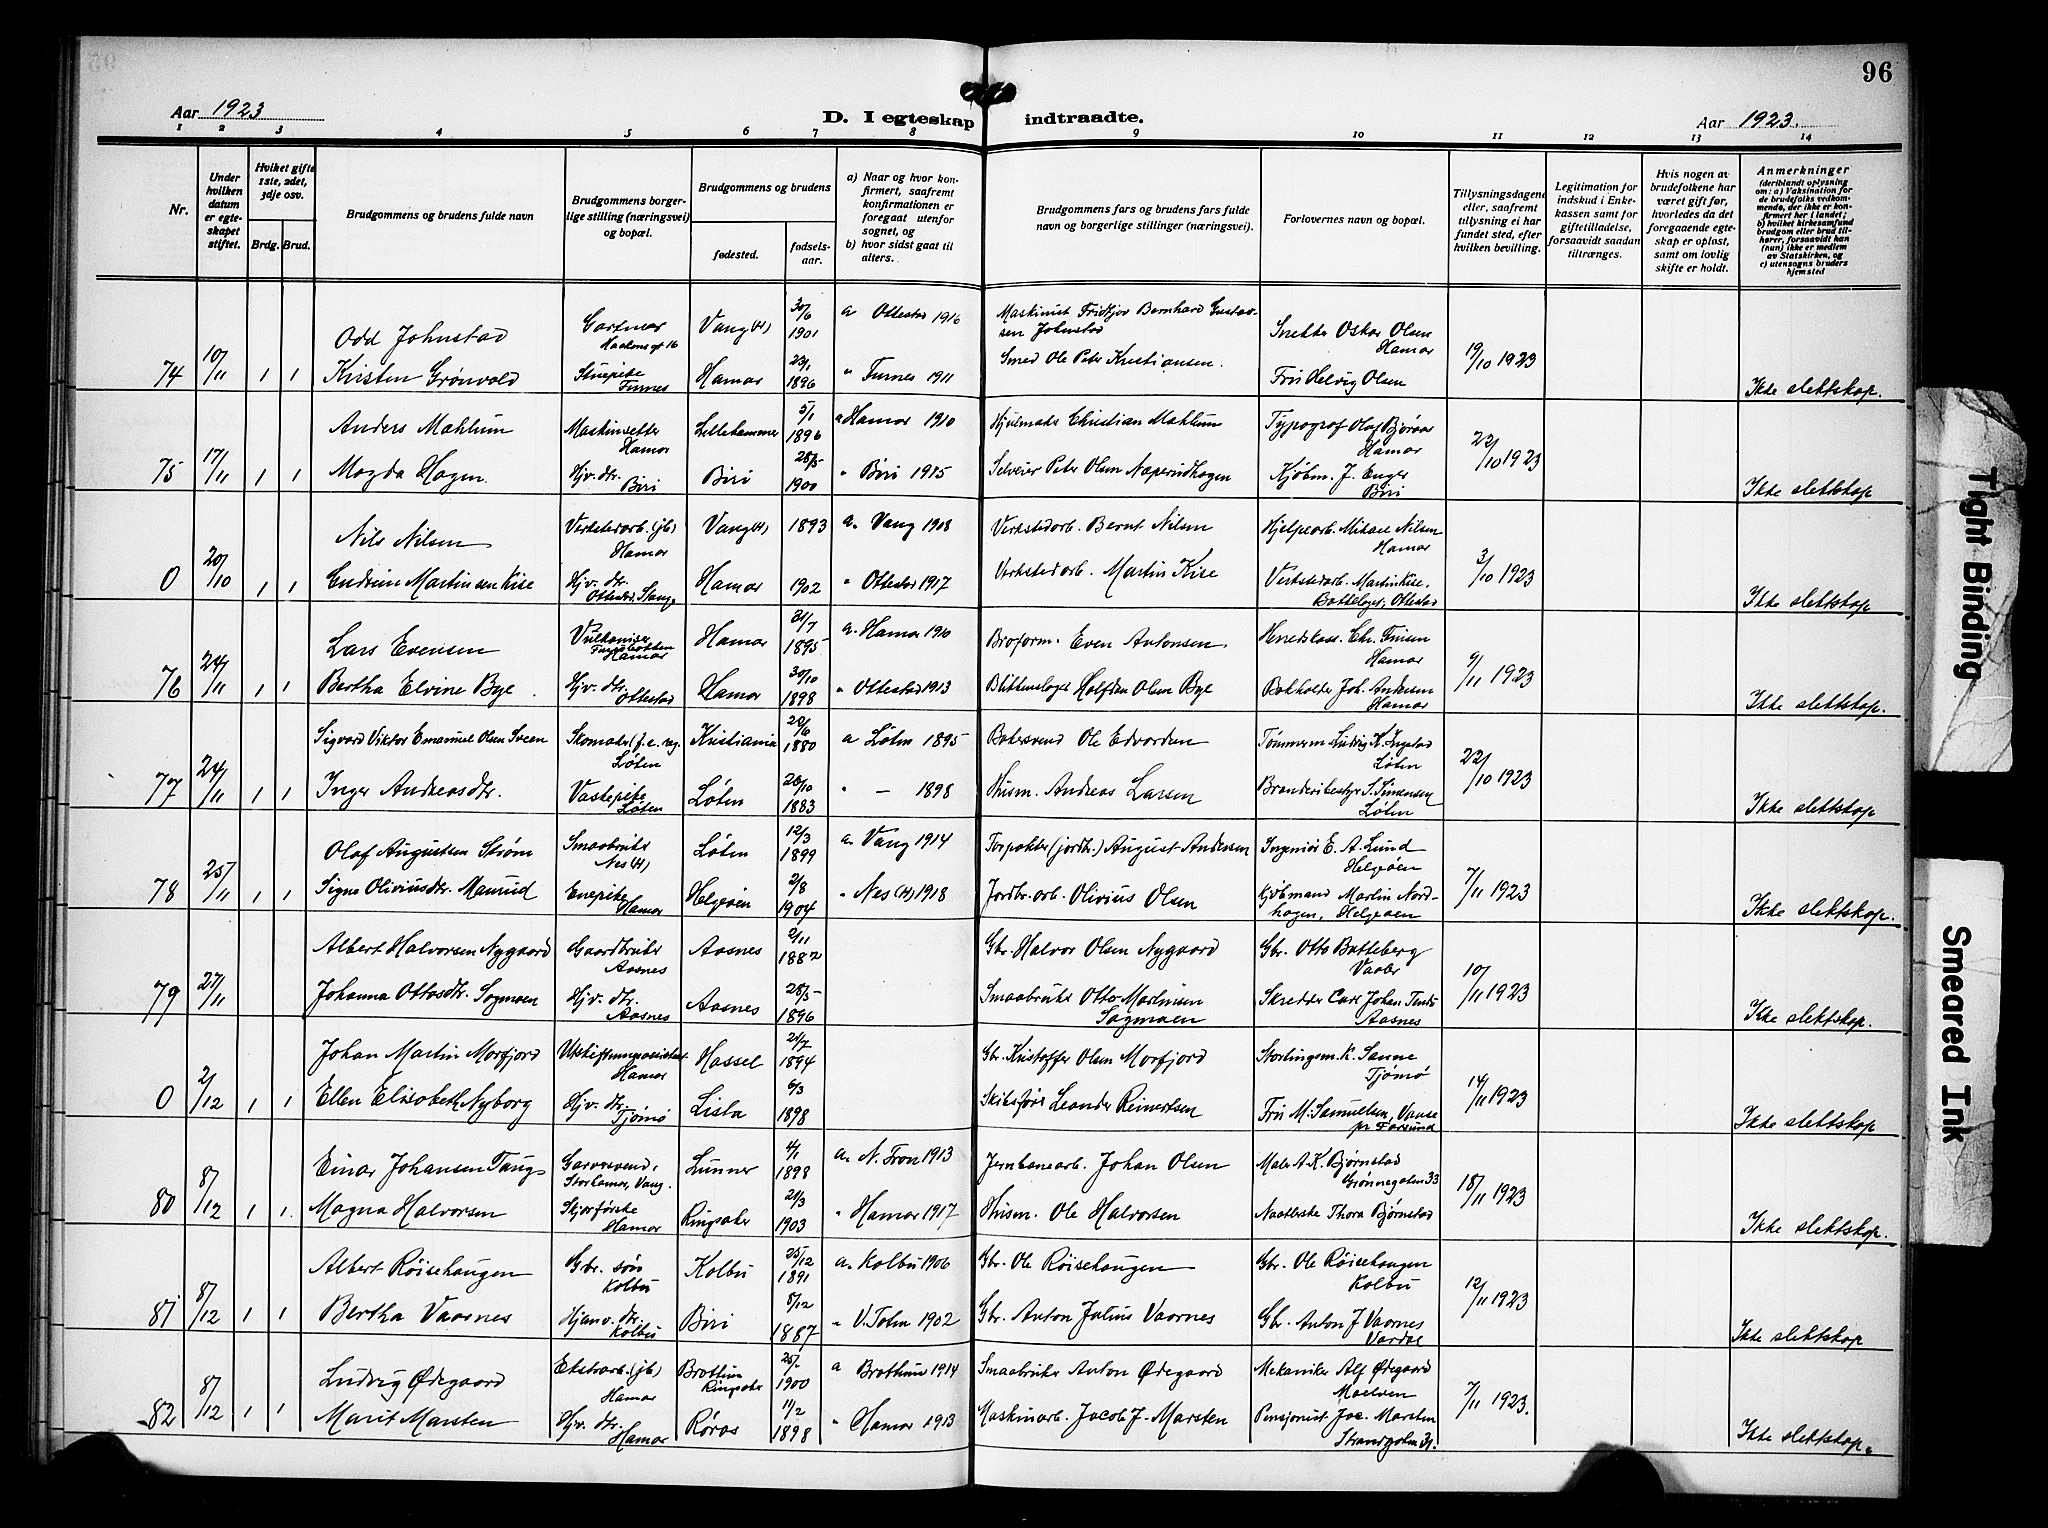 96
Aar 1923
D. I egteskap indtraadte.
Aar 1923.
1 2 3 4 5 6 7 8 9 10 11 12 13 14
Nr.
Under hvilken datum er egteskapet stiftet.
Hvilket gifte 1ste, 2det, 3dje osv.
Brdg. Brud.
Brudgommens og brudens fulde navn
Brudgommens borgerlige stilling (næringsvei) og bopæl.
Brudgommens og brudens
fødested.
fødselsaar.
a) Naar og hvor konfirmert, saafremt konfirmationen er foregaat utenfor sognet, og
b) hvor sidst gaat til alters.
Brudgommens fars og brudens fars fulde navn og borgerlige stillinger (næringsvei).
Forlovernes navn og bopæl.
Tillysningsdagene eller, saafremt tillysning ei har fundet sted, efter hvilken bevilling.
Legitimation for indskud i Enkekassen samt for giftetilladelse, forsaavidt saadan tiltrænges.
Hvis nogen av brudefolkene har været gift før, hvorledes da det foregaaende egteskap er opløst, samt om lovlig skifte er holdt.
Anmerkninger
(deriblandt oplysning om: a) Vaksination for de brudefolks vedkommende, der ikke er konfirmert her i landet; b) hvilket kirkesamfund brudgom eller brud tilhører, forsaavidt han (hun) ikke er medlem av Statskirken, og c) utensogns bruders hjemsted
Odd Johnstad Gartner Haakons gt 16 Vang (H) 30/6 1901 a Ottestad 1916 Maskinist Fridtjov Bernhard Gustavsen Johnstad Snekker Oskar Olsen Hamar
74 10/11 1 1 Kristen Grønvold Stuepike Furnes Hamar 23/1 1896 " Furnes 1911 Smed Ole Peter Kristiansen. Fru Helvig Olsen 19/10 1923 Ikke slektskap.
Anders Mæhlum Maskinsetter Hamar Lillehammer 5/1 1896 a Hamar 1910 Hjulmaker Christian Mæhlum Typograf Olaf Bjøraas Hamar
75 17/11 1 1 Magda Hagen. Hjv. dtr. Biri Biri 28/5 1900 " Biri 1915 Selveier Peter Olsen Næperudhagen Kjøbm. J. Enger Biri 22/10 1923 Ikke slektskap
Nils Nilsen Verkstedarb. (jb) Hamar Vang (H) 1893 a. Vang 1908 Verkstedarb. Bernt Nilsen Hjelpearb. Mikael Nilsen Hamar
0 20/10 1 1 Endrine Martinsen Kise Hjv. dtr. Ottestad, Stange Hamar 1902 " Ottestad 1917 Verkstedarb. Martin Kise Verkstedarb. Martin Kise, Bakkelaget, Ottestad 3/10 1923 Ikke slektskap
Lars Evensen Vulkaniser Hamar Hamar 21/7 1895 a. Hamar 1910 Broform. Even Antonsen Herredskass. Chr. Finsen Hamar
76 24/11 1 1 Bertha Elvine Bye. Hjv. dtr. Ottestad Hamar 30/10 1898 " Ottestad 1913 Blikkenslager Halfdan Olsen Bye Bokholder Joh. Andersen Hamar 9/11 1923 Ikke slektskap.
Sigvard Viktor Emanuel Olsen Sveen Skomaker Løten Kristiania 20/6 1880 a Løten 1895 Bakersvend Ole Edvardsen Tømmerm. Ludvig K. Ingstad Løten
77 24/11 1 1 Inger Andreasdtr. Vaskepike Løten Løten 20/10 1883 " — 1898 Husm. Andreas Larsen Brænderibestyr. S. Simensen Løten 22/10 1923 Ikke slektskap
Olaf Augustsen Strøm Smaabruker Nes (H) Løten 12/3 1899 a. Vang 1914 Forpakter (jordbr.) August Andersen Ingeniør E. A. Lund Helgøen
78 25/11 1 1 Signe Oliviusdtr. Maurud Enepike Hamar Helgøen 2/8 1904 " Nes (H) 1918 Jordbr.arb. Olivius Olsen Kjøbmand Martin Nordhagen, Helgøen 7/11 1923 Ikke slektskap.
Albert Halvorsen Nygaard Gaardbruker Aasnes Aasnes 2/11 1882 Gbr. Halvor Olsen Nygaard Gbr. Otto Batteberg Vaaler
79 27/11 Johanna Ottosdtr. Sagmoen Hjv. dtr. Aasnes Aasnes 28/5 1896 Smaabruker Otto Martinsen Sagmoen Skrædder Carl Johan Aasnes 10/11 1923 Ikke slektskap.
Johan Martin Morfjord Utskiftningsassistent Hamar Hassel 21/7 1894 Gbr. Kristoffer Olsen Morfjord Stortingsm. K. Sanne Tjømø
0 2/12 1 1 Ellen Elisabeth Nyborg Hjv. dtr. Tjømø Lista 6/3 1898 Skibsfører Leander Reinertsen Fru M. Samuelsen, Vanse pr Farsund 14/11 1923 Ikke slektskap
Einar Johansen Taug Garversvend, Storhamar, Vang. Lunner 4/1 1898 a. N. Fron 1913 Jernbanearb. Johan Olsen Maler A. K. Bjørnstad Grønnegaten 33
80 8/12 1 1. Magna Halvorsen Skjorførske Hamar Ringsaker 21/3 1903 " Hamar 1917 Husm. Ole Halvorsen Naatlerske Thora Bjørnstad 18/11 1923 Ikke slektskap.
Albert Røisehaugen Gbr. søn Kolbu Kolbu 25/12 1891 a. Kolbu 1906 Gbr. Ole Røisehaugen Gbr. Ole Røisehaugen Kolbu
81 8/12 1 1 Bertha Vaarnes Hjemv. dtr. Kolbu Biri 5/12 1887 " V. Toten 1902 Gbr. Anton Julius Vaarnes Gbr. Anton J Vaarnes Vardal 12/11 1923 Ikke slektskap
Ludvig Ødegaard Ekstraarb. (jb) Hamar Brøttum Ringsaker 1900 a Brøttum 1914 Smaabruker Anton Ødegaard Mekaniker Alf Ødegaard Moelven
82 8/12 1 1 Marit Marsten Hjv. dtr. Hamar Røros 11/2 1898 " Hamar 1913 Maskinarb. Jacob J. Marsten Pensjonist Jac. Marsten Strandgaten 31. 7/11 1923. Ikke slektskap.
Tight Binding
Smeared Ink